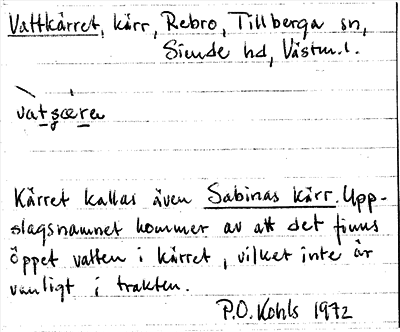 Vattkärret, kärr, Rebro, Tillberga sn,
Siende hd, Västm.l.
vatgæra
Kärret kallas även Sabinas kärr. Upp-
slagsnamnet kommer av att det finns
öppet vatten i kärret, vilket inte är
vanligt i trakten.
P.O. Kohls 1972